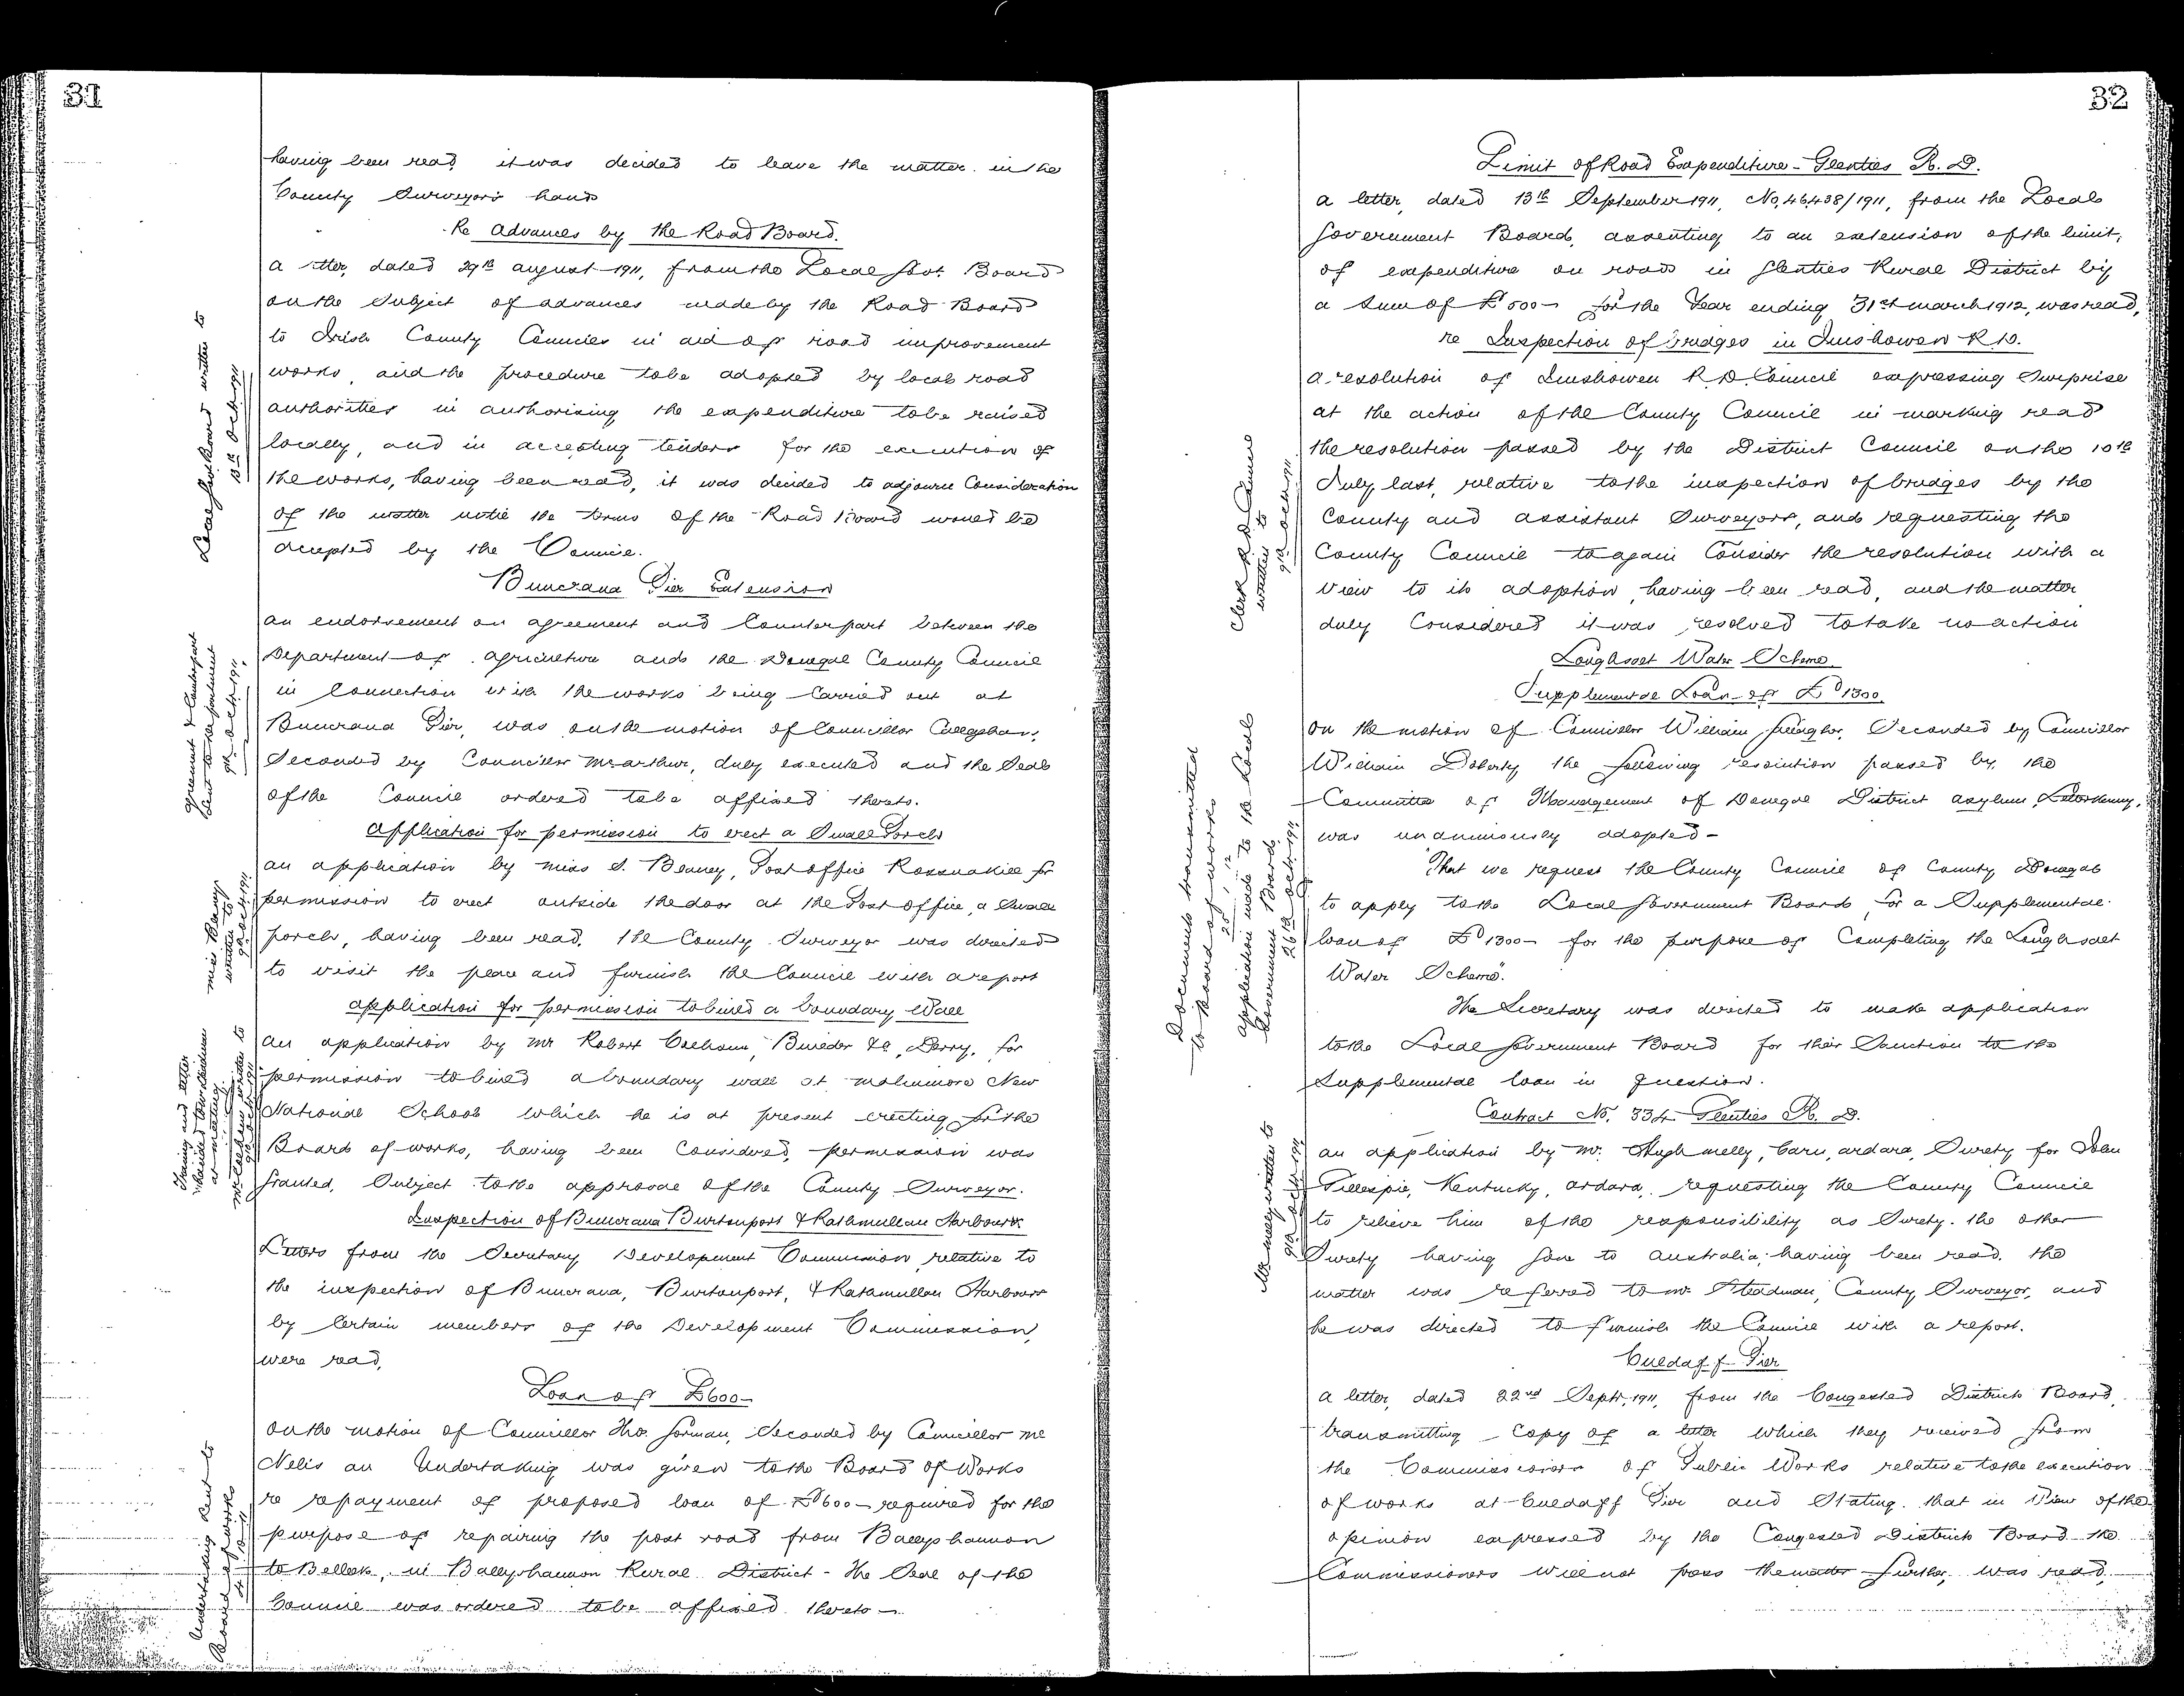 31
having been read, it was decided to leave the matter in the
County Surveyor's hands
Re Advances by the Road Board.
a letter, dated 29th august 1911, from the Local Govt. Board
on the Subject of advances made by the Road Board
to Irish County Councils in aid of road improvement
works, and the procedure to be adopted by local road
authorities in authorising the expenditure to be raised
locally, and in accepting tenders for the execution of
the works, having been read, it was decided to adjourn Consideration
of the matter until the terms of the Road Board would be
accepted by the Council.
Local Government written to
13th Oct 1911
Buncrana Pier Extension
an endorsement on agreement and Counterpart between the
Department of agriculture and the Donegal County Council
in Connection with the works being Carried out at
Buncrana Pier, was on the motion of Councillor Callaghan,
Seconded by Councillor McArthur, duly executed and the Seal
of the Council ordered to be affixed thereto.
agreement & Counterpart
sent to department
9th Oct. 1911.
application for permission to erect a Small Porch
an application by miss S. Blaney, Post office Rossnakill for
permission to erect outside the door at the Post office, a Small
porch, having been read, the County Surveyor was directed
to visit the place and furnish the Council with a report
miss Blaney
written to
9th Oct 1911
application for permission to build a boundary Wall
an application by Mr Robert Colhoun, Builder &c, Derry, for
permission to build a boundary wall at malinmore New
National School which he is at present erecting for the
Board of works, having been Considered, permission was
Granted, Subject to the approval of the County Surveyor.
Inspection of Buncrana Burtonport & Rathmullan Harbours
Letters from the Secretary Development Commission relative to
the inspection of Buncrana, Burtonport, & Rathmullan Harbours
by Certain members of the Development Commission,
were read,
Loan of £600-
On the motion of Councillor Thos. Gorman, Seconded by Councillor Mc
Nelis an Undertaking was given to the Board of Works
re repayment of proposed loan of £600- required for the
purpose of repairing the post road from Ballyshannon
to Belleek, in Ballyshannon Rural District - The Seal of the
Council was ordered to be affixed thereto -
Undertaking sent to
Board of works
32
Limit of Road Expenditure - Glenties R. D.
a letter, dated 13th September 1911, No, 46,438/1911, from the Local
Government Board, assenting to an extension of the limit,
of expenditure on roads in Glenties Rural District by
a Sum of £500- for the Year ending 31st march 1912, was read,
re Inspection of bridges in Inishowen R D.
a resolution of Inishowen R D Council expressing Surprise
at the action of the County Council in marking read
the resolution passed by the District Council on the 10th
July last, relative to the inspection of bridges by the
County and assistant Surveyors, and requesting the
County Council to again Consider the resolution with a
View to its adoption, having been read, and the matter
duly Considered it was resolved to take no action
Clerk R. D. Council
written to
9th Oct 1911
Lough Salt Water Scheme.
Supplemental Loan of £1300
On the motion of Councillor William Gallagher, Seconded by Councillor
William Doherty the following resolution passed by the
Committee of Management of Donegal District asylum, Letterkenny,
was unanimously adopted -
"That we request the County Council of County Donegal
to apply to the Local Government Board for a Supplemental
loan of £1300- for the purpose of Completing the Lough Salt
Water Scheme".
The Secretary was directed to make application
to the Local Government Board for their Sanction to the
Supplemental loan in question.
Documents transmitted
to Board of works
application made to the Local
Government Board
26th Oct. 1911
Contract No, 334 Glenties R. D.
an application by Mr. Hugh melly, Carn, ardara, Surety for John
Gillespie, Kentucky, ardara, requesting the County Council
to relieve him of the responsibility as Surety. the other
Surety having gone to australia; having been read, the
matter was referred to Mr. Steadman, County Surveyor, and
he was directed to furnish the Council with a report.
Mr melly written to
9th Oct 1911
Culdaff Pier
a letter, dated 22nd Septr, 1911, from the Congested Districts Board,
transmitting Copy of a letter which they received from
the Commissioners of Public Works relative to the execution
of works at Culdaff Pier and Stating that in View of the
opinion expressed by the Congested Districts Board the
Commissioners will not press the matter further, was read.